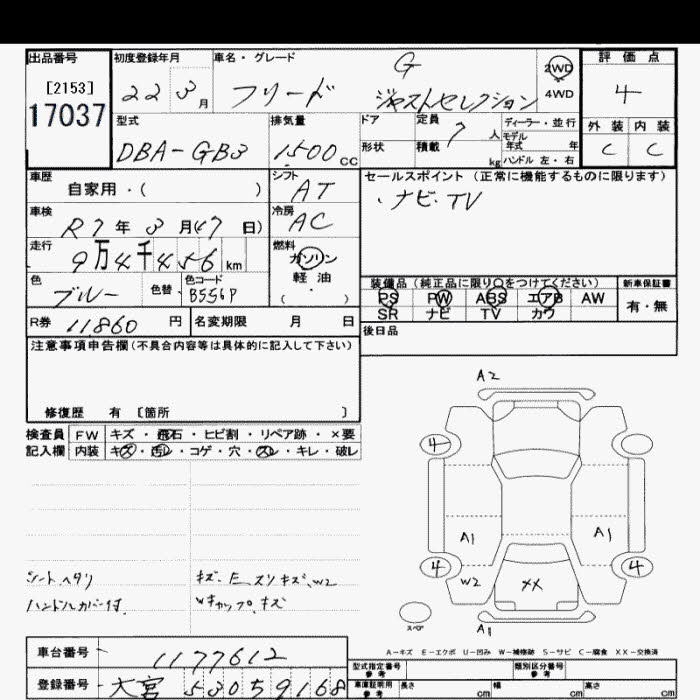 出品番号
[2153]
17037
初度登録年月
22 3 月
車名・グレード
フリード
G
ジャストセレクション
2WD
4WD
評価点
4
外装 内装
C C
型式
DBA-GB3
排気量
1500 CC
ドア
定員
7 人
ディーラー・並行
モデル
年式 年
形状
積載
kg
ハンドル 左・右
車歴
自家用・( )
シフト
AT
セールスポイント(正常に機能するものに限ります)
・ナビ・TV
車検
R7 年 3 月(17 日)
冷房
AC
走行
9万4千456 km
燃料
ガソリン
軽油
( ・ )
色
ブルー
色替
色コード
B556P
装備品(純正品に限り○をつけてください)
新車保証書
PS PW ABS エアB AW
SR ナビ TV カワ
有・無
R券 11860 円
名変期限 月 日
後日品
注意事項申告欄(不具合内容等は具体的に記入して下さい)
修復歴 有 [箇所 ]
検査員 FW キズ・飛石・ヒビ割・リペア跡・×要
記入欄 内装 キズ・汚レ・コゲ・穴・スレ・キレ・破レ
シートヘタリ
ハンドルカバー付
キズ、E、スリキズ、W2
Wキャップ、キズ
A2
4
A1 A1
4 4
W2 XX
スペア
A1
A-キズ E-エクボ U-凹み W-補修跡 S-サビ C-腐食 XX-交換済
車台番号 1177612
登録番号 大宮 530 5 9168
型式指定番号
参考
類別区分番号
参考
車庫証明用
参考
長さ cm 幅 cm 高さ cm